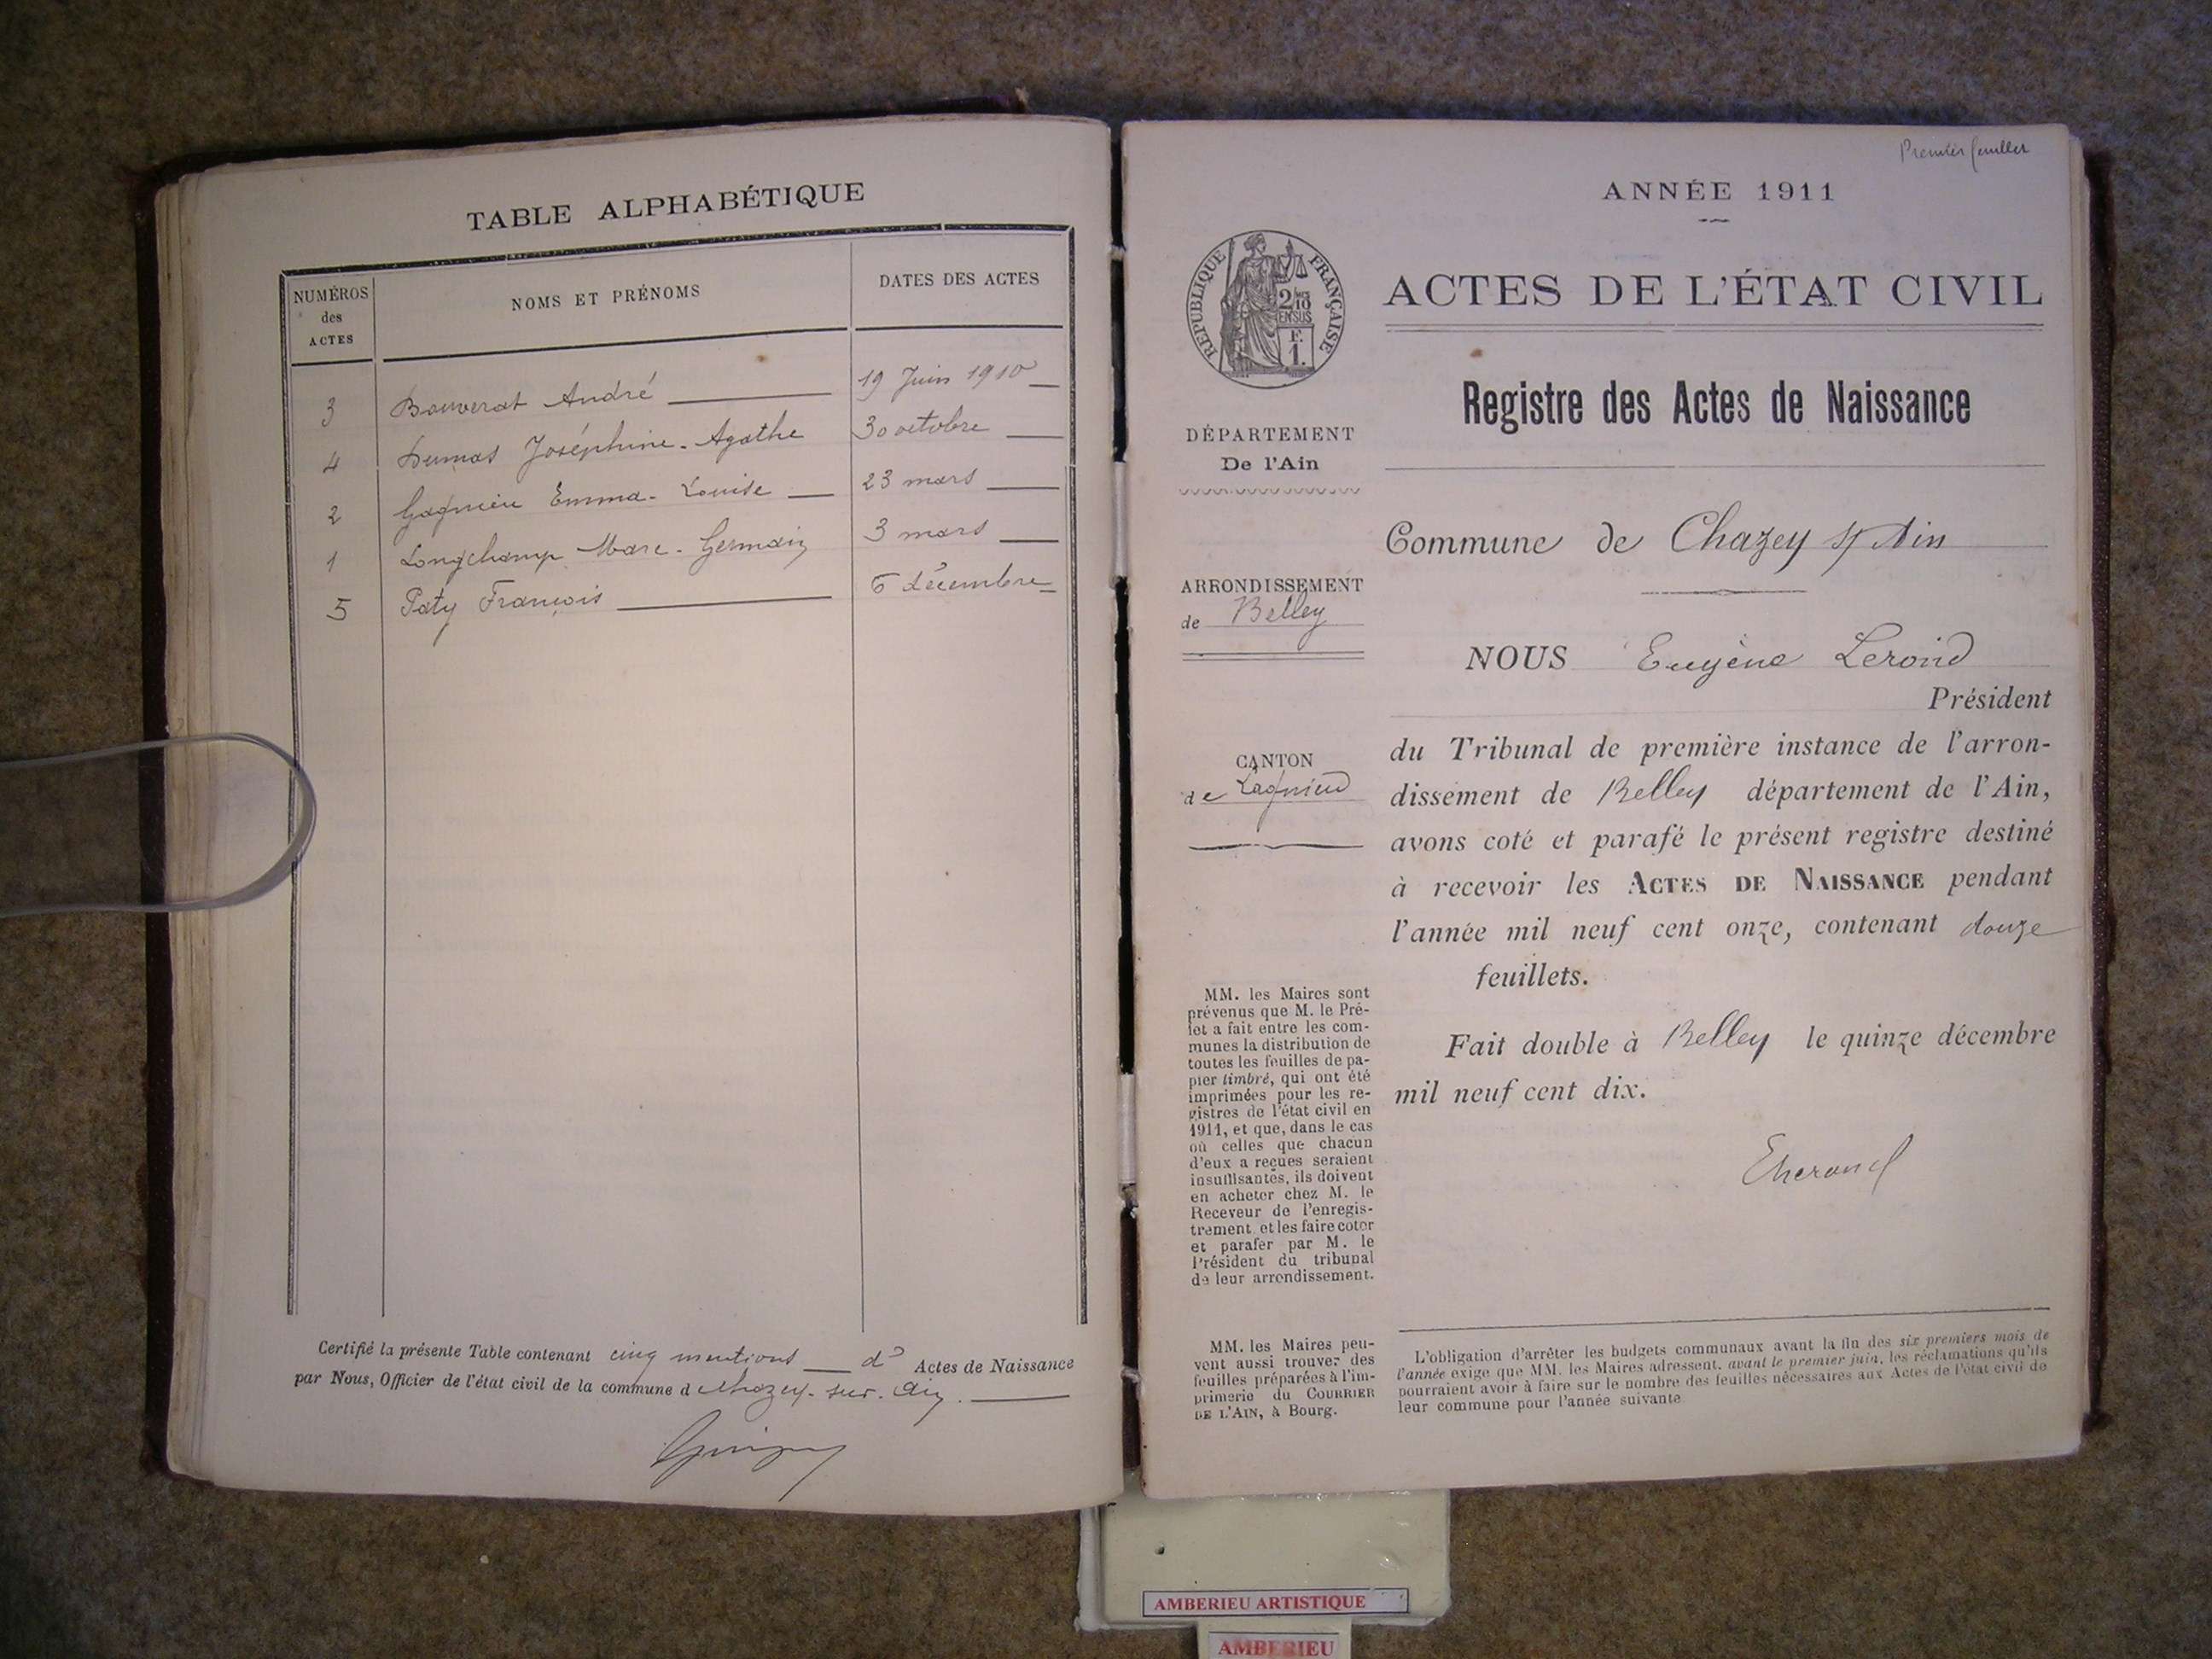 TABLE ALPHABÉTIQUE
NUMÉROS
des
ACTES
NOMS ET PRÉNOMS
DATES DES ACTES
3 Bouverat André 19 Juin 1910
4 Dumas Joséphine-Agathe 30 octobre
2 Emma-Louise 23 mars
1 Longchamp Marc-Germain 3 mars
5 Paty François 6 décembre
Certifié la présente Table contenant cinq mentions d' Actes de Naissance
par Nous, Officier de l'état civil de la commune d Chazey-sur-Ain.
Premier feuillet
ANNÉE 1911
RÉPUBLIQUE FRANÇAISE
2/10
EN SUS
F.
1.
ACTES DE L'ÉTAT CIVIL
Registre des Actes de Naissance
DÉPARTEMENT
De l'Ain
Commune de Chazey s/ Ain
ARRONDISSEMENT
de Belley
NOUS Eugène
Président
CANTON
de Lagnieu
du Tribunal de première instance de l'arron-
dissement de Belley département de l'Ain,
avons coté et parafé le présent registre destiné
à recevoir les ACTES DE NAISSANCE pendant
l'année mil neuf cent onze, contenant douze
feuillets.
Fait double à Belley le quinze décembre
mil neuf cent dix.
MM. les Maires sont
prévenus que M. le Pré-
fet a fait entre les com-
munes la distribution de
toutes les feuilles de pa-
pier timbré, qui ont été
imprimées pour les re-
gistres de l'état civil en
1911, et que, dans le cas
où celles que chacun
d'eux a reçues seraient
insuffisantes, ils doivent
en acheter chez M. le
Receveur de l'enregis-
trement et les faire coter
et parafer par M. le
Président du tribunal
de leur arrondissement.
MM. les Maires peu-
vent aussi trouver des
feuilles préparées à l'im-
primerie du COURRIER
DE L'AIN, à Bourg.
L'obligation d'arrêter les budgets communaux avant la fin des six premiers mois de
l'année exige que MM. les Maires adressent, avant le premier juin, les réclamations qu'ils
pourraient avoir à faire sur le nombre des feuilles nécessaires aux Actes de l'état civil de
leur commune pour l'année suivante
AMBERIEU ARTISTIQUE
AMBERIEU